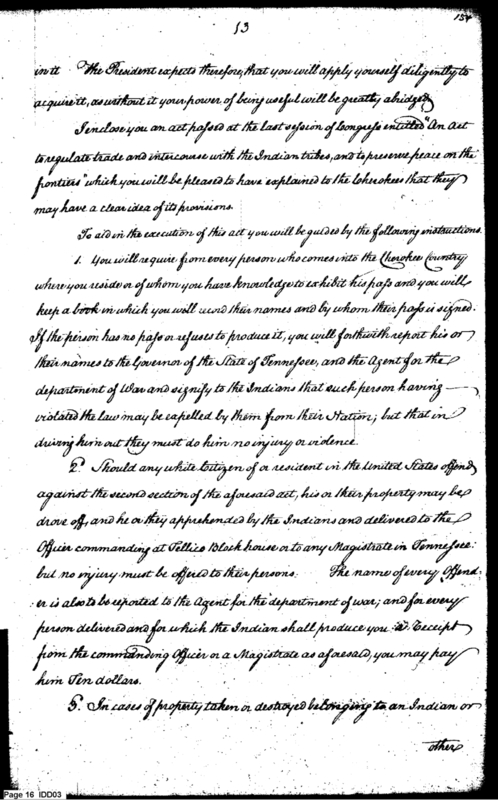 13
154
in it The President expects therefore, that you will apply yourself diligently to
acquire it, as without it your power of being useful will be greatly abridged,
I enclose you an act passed at the last session of Congress entitled "An Act
to regulate trade and intercourse with the Indian tribes, and to preserve peace on the
frontiers" which you will be pleased to have explained to the Cherokees that they
may have a clear idea of its provisions.
To aid in the execution of this act you will be guided by the following instructions.
1. You will require from every person who comes into the Cherokee Country
where you reside or of whom you have knowledge to exhibit his pass and you will
keep a book in which you will record their names and by whom their pass is signed.
If the person has no pass or refuses to produce it, you will forthwith report his or
their names to the Governor of the State of Tennessee, and the Agent for the
department of War and signify to the Indians that such person having
violated the law may be expelled by them from their Nation; but that in
driving him out they must do him no injury or violence.
2d Should any white Citizen of or resident in the United States offend
against the second section of the aforesaid act, his or their property may be
drove off, and he or they apprehended by the Indians and delivered to the
Officer commanding at Tellico Block house or to any Magistrate in Tennessee:
but no injury must be offered to their persons. The name of every Offend
:er is also to be reported to the Agent for the department of war; and for every
person delivered and for which the Indian shall produce you a Receipt
from the commanding Officer or a Magistrate as aforesaid, you may pay
him Ten dollars.
3. In cases of property taken or destroyed belonging to an Indian or
other
Page 16 IDD03